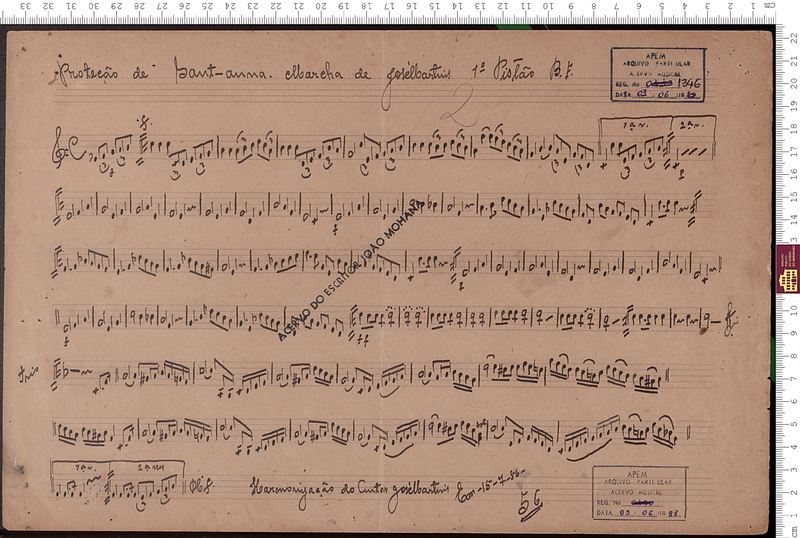 Proteção de Sant-anna. Marcha de José Martins 1º Pistão B.F.
APEM
ARQUIVO PARTICULAR
ACERVO MUSICAL
REG. No 1346
DATA 03 / 06 / 19
2
1ª v. 2ª v.
ACERVO DO ESCRITOR JOÃO MOHANA
Trio
1ª v. 2ª v.
Harmonização do Cuter José Martins Em-15-7-56-
56
APEM
ARQUIVO PARTICULAR
ACERVO MUSICAL
REG. No
DATA 03 / 06 / 1988